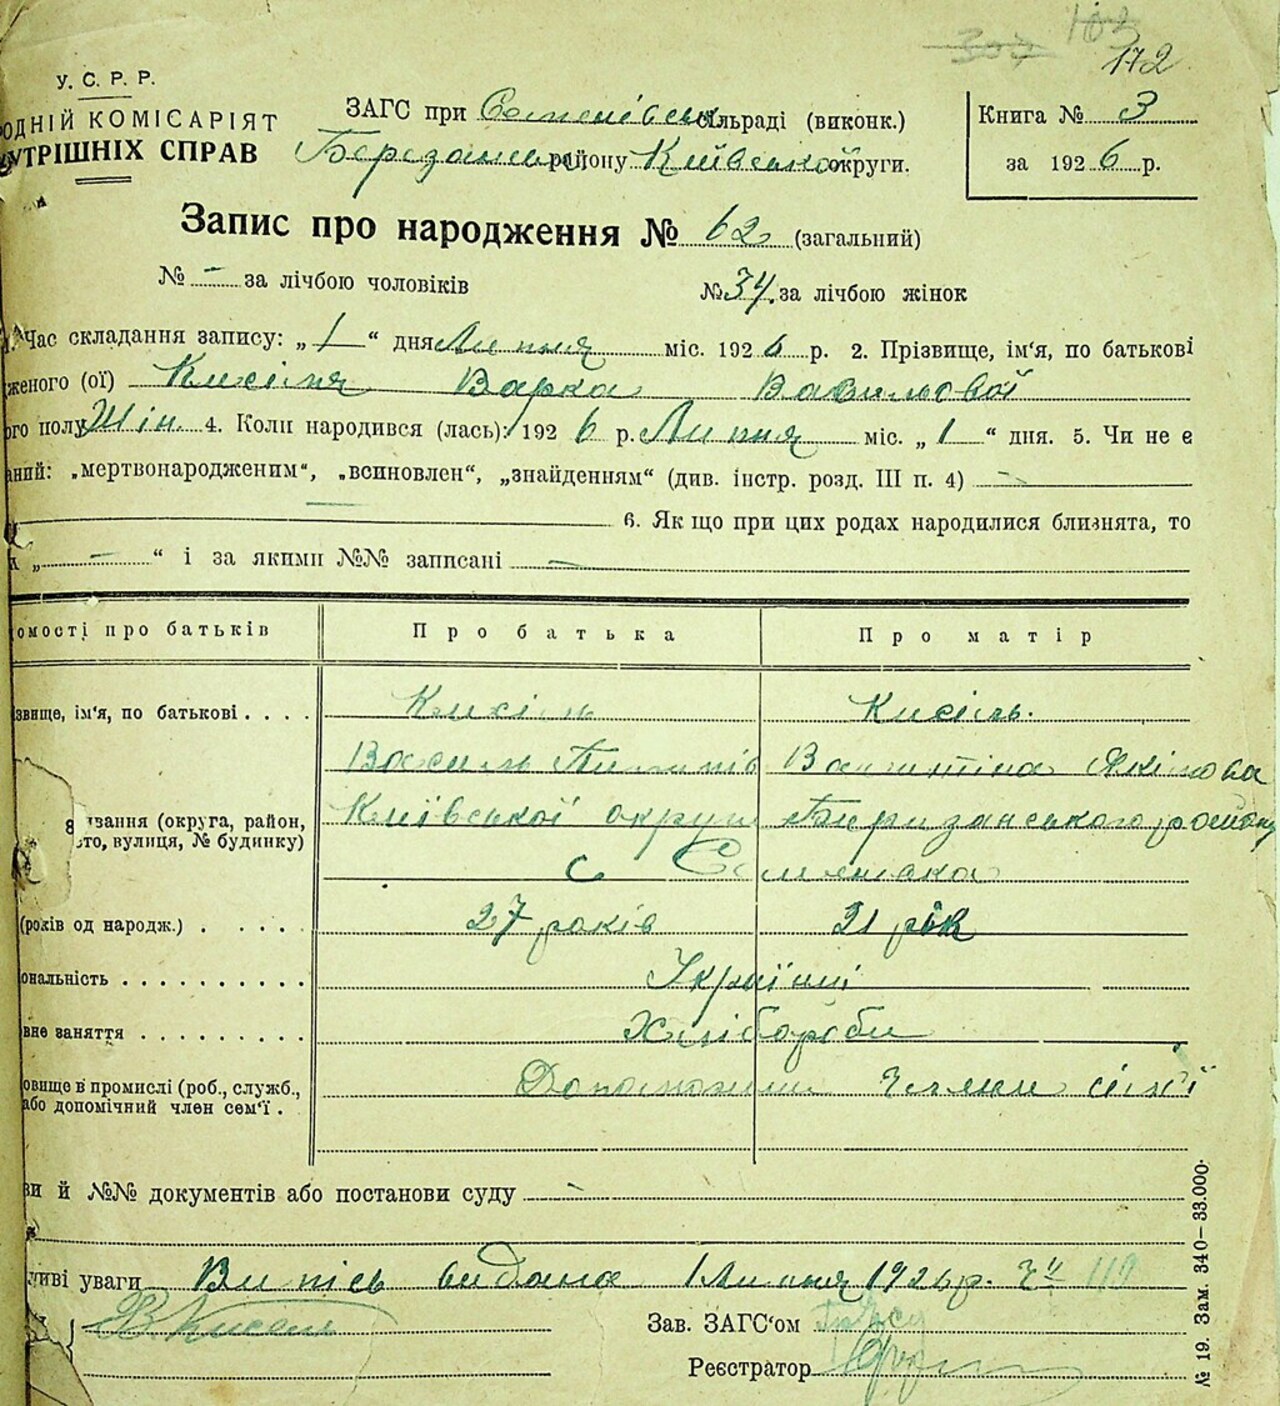 172
У. С. Р. Р.
ОДНІЙ КОМІСАРІЯТ
УТРІШНІХ СПРАВ
ЗАГС при Семенівськ сільраді (виконк.)
Березанськ району Київської округи.
Книга № 3
за 1926 р.
Запис про народження № 62 (загальний)
№ - за лічбою чоловіків
№ 34. за лічбою жінок
Час складання запису: „1“ дня Липня міс. 1926 р. 2. Прізвище, ім'я, по батькові
женого (ої) Кисіля Варка Васильової
ого полу Жін. 4. Коли народився (лась): 1926 р. Липня міс. „1“ дня. 5. Чи не є
аний: „мертвонародженим“, „всиновлен“, „знайденням“ (див. інстр. розд. III п. 4) -
6. Як що при цих родах народилися близнята, то
х „-“ і за якими №№ записані -
омості про батьків Про батька Про матір
звище, ім'я, по батькові . . . . Кисіль Кисіль.
Василь Якімова
ування (округа, район, Київської округи Беризанського району
сто, вулиця, № будинку) с Семенівка
(років од народж.) . . . . . 27 років 21 рік
ональність . . . . . . . . . . Українці
вне заняття . . . . . . . . . Хлібороби
овище в промислі (роб., служб., Допомагаючі члени сім'ї
або допомічний член сем'ї .
ви й №№ документів або постанови суду -
ливі уваги Випісь видана 1 Липня 1926 р. 119
В Кисель
Зав. ЗАГС'ом
Реєстратор
№ 19. Зам. 340—33.000.